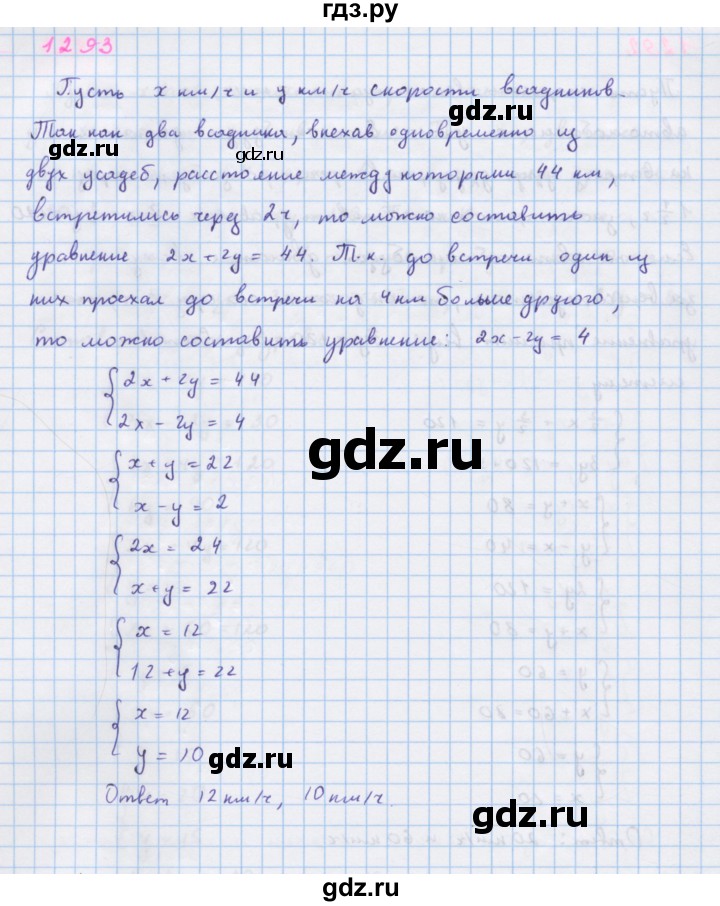 гдз.ру
1293
Пусть x км/ч и y км/ч скорости всадников.
Так как два всадника, выехав одновременно из
gdz.ru
gdz.ru
двух усадеб, расстояние между которыми 44 км,
встретились через 2ч, то можно составить
уравнение 2x + 2y = 44. Т.к. до встречи один из
них проехал до встречи на 4 км больше другого,
то можно составить уравнение: 2x - 2y = 4
2x + 2y = 44
2x - 2y = 4
gdz.ru
x + y = 22
x - y = 2
2x = 24
x + y = 22
x = 12
12 + y = 22
x = 12
y = 10
gdz.ru
gdz.ru
Ответ 12 км/ч, 10 км/ч.
gdz.ru